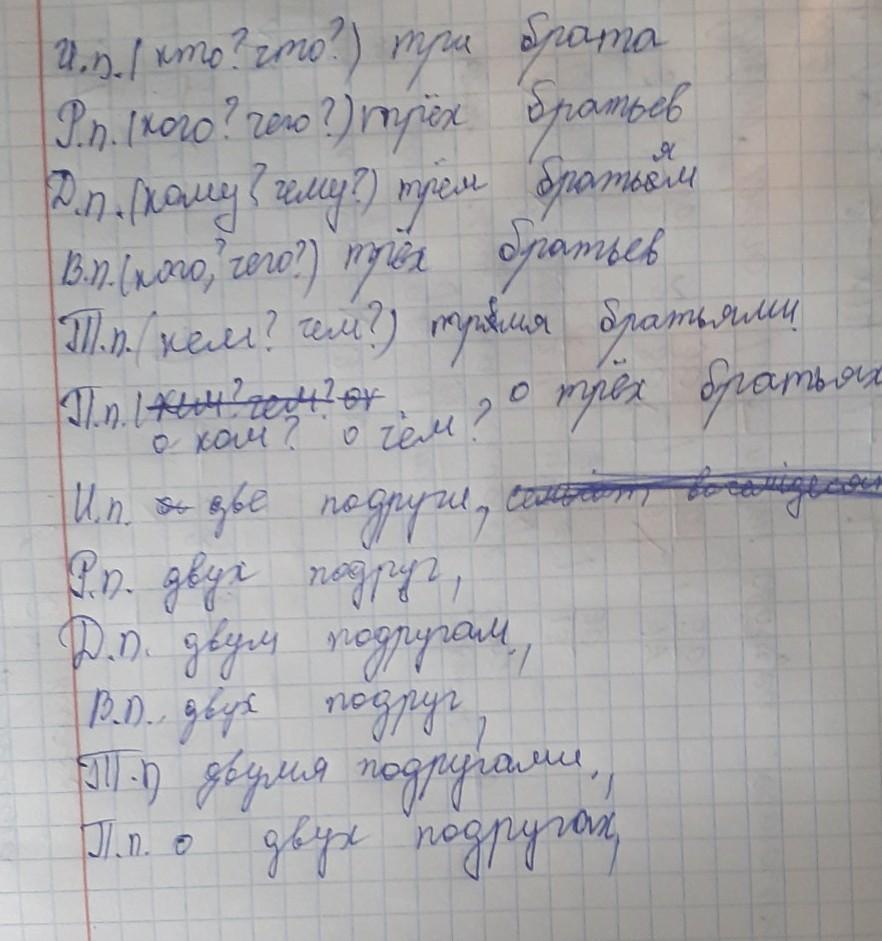 И.п. (кто? что?) три брата
Р.п. (кого? чего?) трёх братьев
Д.п. (кому? чему?) трём братьям
В.п. (кого, ? чего?) трёх братьев
Т.п. (кем? чем?) тремя братьями
П.п. (о трёх братьях
о ком? о чём?
И.п. две подруги,
Р.п. двух подруг,
Д.п. двум подругам,
В.п. двух подруг,
Т.п двумя подругами,
П.п. о двух подругах,